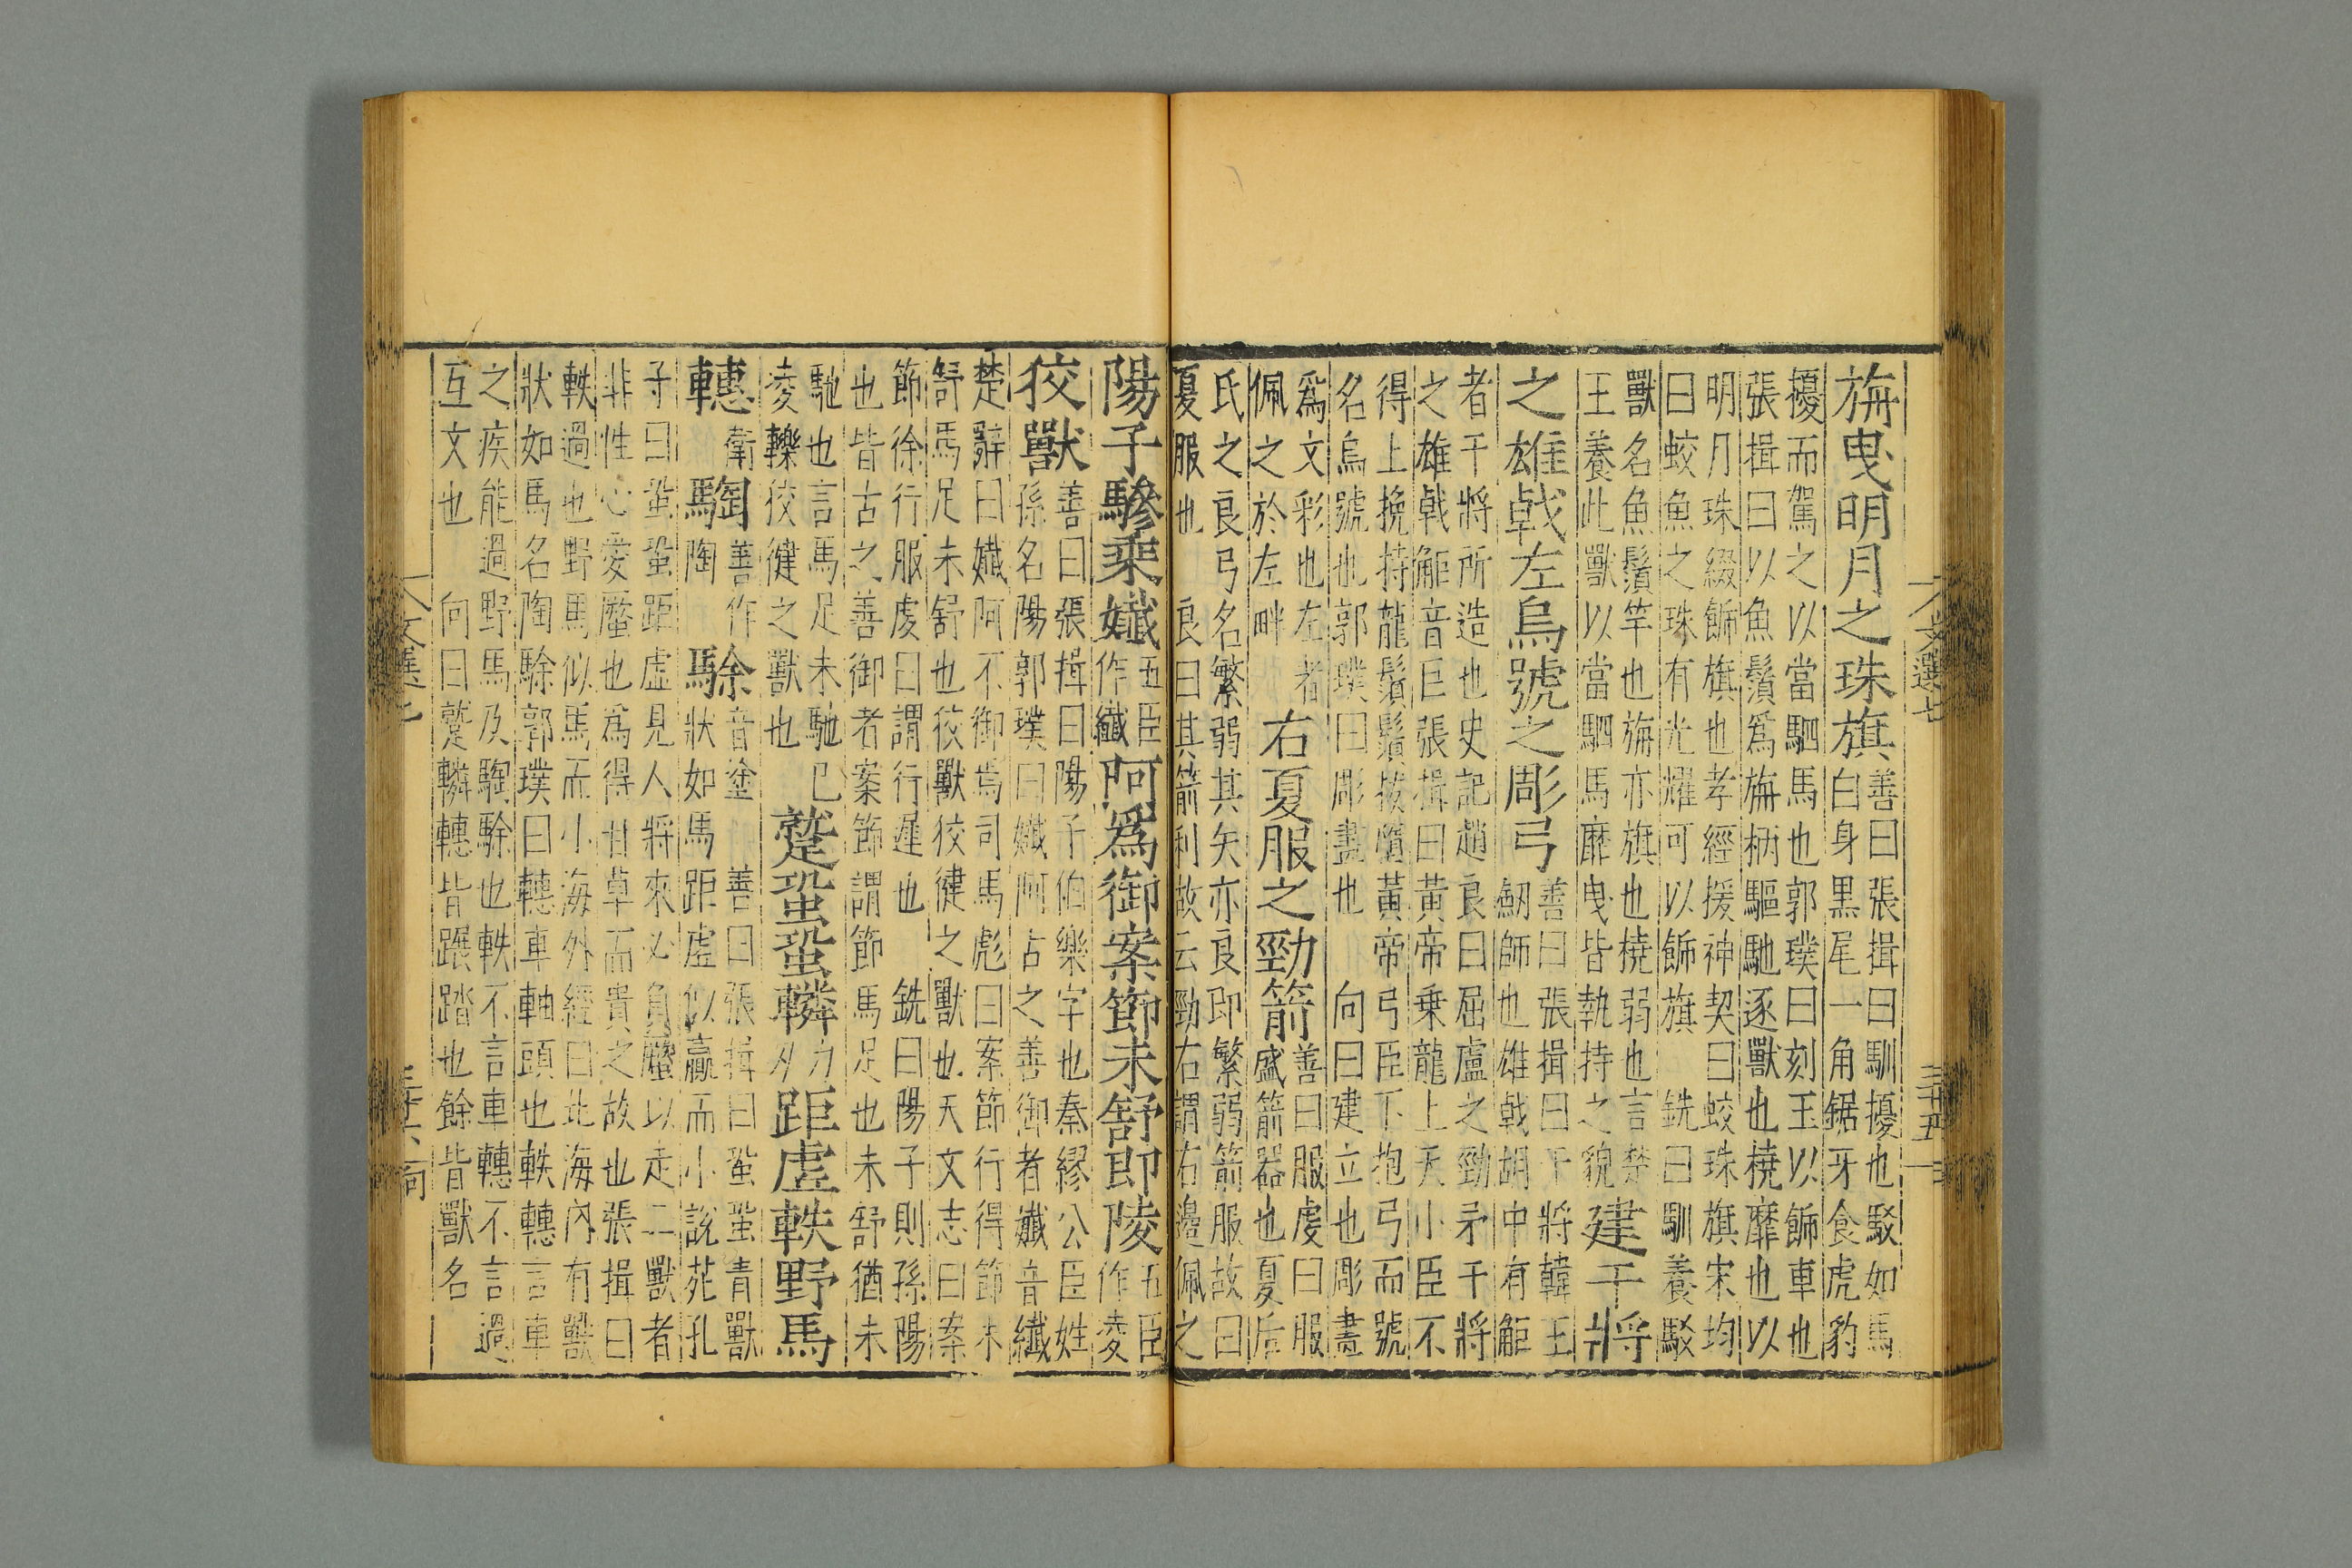 文選七 三十五
旃曳明月之珠旗
善曰張揖曰馴擾也駮如馬
白身黑尾一角鋸牙食虎豹
擾而駕之以當駟馬也郭璞曰刻玉以飾車也
張揖曰以魚鬚爲旃柄驅馳逐獸也橈靡也以
明月珠綴飾旗也孝經援神契曰蛟珠旗宋均
曰蛟魚之珠有光耀可以飾旗 銑曰馴養駮
獸名魚鬚竿也旃亦旗也橈弱也言楚
王養此獸以當駟馬靡曳皆執持之貌
建干將
之雄戟左烏號之彫弓
善曰張揖曰干將韓王
劒師也雄戟胡中有鮔
者干將所造也史記趙良曰屈盧之勁矛干將
之雄戟鮔音巨張揖曰黃帝乗龍上天小臣不
得上挽持龍鬚鬚拔墮黃帝弓臣下抱弓而號
名烏號也郭璞曰彫畫也 向曰建立也彫畫
爲文彩也左者
佩之於左畔
右夏服之勁箭
善曰服虔曰服
盛箭器也夏后
氏之良弓名繁弱其矢亦良即繁弱箭服故曰
夏服也 良曰其箭利故云勁右謂右邊佩之
陽子驂乗孅
五臣
作纖
阿爲御案節未舒即陵
五臣
作凌
狡獸
善曰張揖曰陽子伯樂字也秦繆公臣姓
孫名陽郭璞曰孅阿古之善御者孅音纖
楚辭曰孅阿不御焉司馬彪曰案節行得節未
舒馬足未舒也狡獸狡健之獸也天文志曰案
節徐行服虔曰謂行遲也 銑曰陽子則孫陽
也皆古之善御者案節謂節馬足也未舒猶未
馳也言馬足未馳已
凌轢狡健之獸也
蹵蛩蛩轔
力
刃
距虛軼野馬
轊
衛
騊
善作
陶
駼
音塗
善曰張揖曰蛩蛩青獸
狀如馬距虛似臝而小說苑孔
子曰蛩蛩距虛見人將來必負蟨以走二獸者
非性心愛蟨也爲得甘草而貴之故也張揖曰
軼過也野馬似馬而小海外經曰北海內有獸
狀如馬名陶駼郭璞曰轊車軸頭也軼轊言車
之疾能過野馬及騊駼也軼不言車轊不言過
互文也 向曰蹵轔轊皆蹍踏也餘皆獸名
文選七 三十六